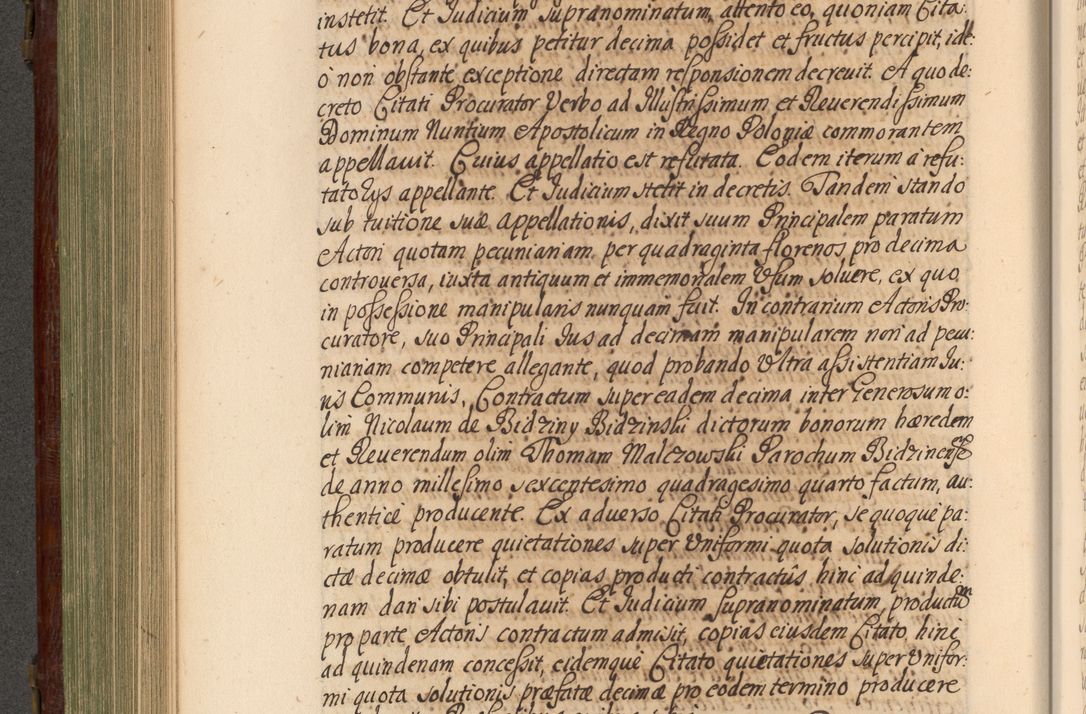 instetit. Et Judicium supranominatum, attento eo, quoniam Cita:
tus bona, ex quibus petitur decima possidet et fructus percipit, ide:
o non obstante exceptione directam responsionem decreuit. A quo de:
creto Citati Procurator Verbo ad Illustrissimum et Reuerendissimum
Dominum Nuntium Apostolicum in Regno Poloniæ commorantem
appellauit. Cuius appellatio est refutata. Eodem iterum a refu:
tatorijs appellante. Et Judicium stetit in decretis. Tandem stando
sub tuitione suæ appellationis, dixit suum Principalem paratum
Actori quotam pecuniariam, per quadraginta florenos pro decima
controversa, iuxta antiquum et immemorialem Usum soluere, ex quo
in possessione manipularis nunquam fuit. In contrarium Actoris Pro:
curatore, suo Principali Jus ad decimam manipularem non ad pecu:
niariam competere allegante, quod probando Ultra assistentiam Ju:
ris Communis, Contractum super eadem decima inter Generosum o:
lim Nicolaum de Bidziny Bidzinski dictorum bonorum hæredem
et Reuerendum olim Thomam Malczowski Parochum Bidzinensem
de anno millesimo sexcentesimo quadragesimo quarto factum, au:
thenticè producente. Ex aduerso Citati Procurator, se quoque pa:
ratum producere quietationes super Uniformi quota solutionis di:
ctæ decimæ obtulit, et copias producti contractûs hinc ad quinde:
nam dari sibi postulauit. Et Judicium supranominatum, productum
pro parte Actoris contractum admisit, copias eiusdem Citato, hinc
ad quindenam concessit, eidemque Citato quietationes super Unifor:
mi quota solutionis præfatæ decimæ pro eodem termino producere